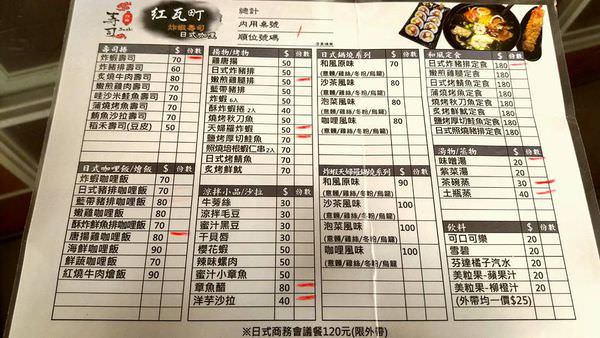 壽司
Sushi
紅瓦町
炸蝦壽司
日式咖哩
總計
內用桌號
順位號碼
壽司捲 $ 份數
炸蝦壽司 70
炸豬排壽司 60
炙燒牛肉壽司 70
嫩煎雞腿壽司 70
哇沙米鮭魚壽司 70
蒲燒烤魚壽司 70
鮪魚沙拉壽司 70
稻禾壽司(豆皮) 50
日式咖哩飯/燴飯 $ 份數
炸蝦咖哩飯 70
日式豬排咖哩飯 70
藍帶豬排咖哩飯 80
嫩雞咖哩飯 80
酥炸鮮魚排咖哩飯 70
唐揚雞咖哩飯 80
海鮮咖哩飯 90
鮮蔬咖哩飯 70
紅燒牛肉燴飯 90
揚物/烤物 $ 份數
雞唐揚 50
日式炸豬排 50
嫩煎雞腿排 50
藍帶豬排 50
炸蝦 6入 50
酥炸蝦捲 2入 40
燒烤秋刀魚 50
天婦羅炸蝦 50
鹽烤厚切鮭魚 70
照燒培根蝦仁串 2入 70
日式烤鯖魚 70
炙烤鮮魷 70
涼拌小品/沙拉 $ 份數
牛蒡絲 50
涼拌毛豆 50
蜜汁黑豆 50
干貝唇 50
櫻花蝦 50
辣味螺肉 50
蜜汁小章魚 50
章魚醋 80
洋芋沙拉 40
日式鍋燒系列 $ 份數
和風原味 70
(意麵/雞絲/冬粉/烏龍)
沙茶風味 80
(意麵/雞絲/冬粉/烏龍)
泡菜風味 80
(意麵/雞絲/冬粉/烏龍)
咖哩風味 80
(意麵/雞絲/冬粉/烏龍)
炸蝦天婦羅鍋燒系列 $ 份數
和風原味 90
(意麵/雞絲/冬粉/烏龍)
沙茶風味 100
(意麵/雞絲/冬粉/烏龍)
泡菜風味 100
(意麵/雞絲/冬粉/烏龍)
咖哩風味 100
(意麵/雞絲/冬粉/烏龍)
和風定食 $ 份數
日式炸豬排定食 180
嫩煎雞腿定食 180
日式烤鯖魚定食 180
蒲燒烤魚定食 180
燒烤秋刀魚定食 180
炙烤鮮魷定食 180
鹽烤厚切鮭魚定食 180
日式照燒豬排定食 180
湯物/蒸物 $ 份數
味噌湯 20
紫菜湯 20
茶碗蒸 30
土瓶蒸 40
飲料 $ 份數
可口可樂 30
雪碧 30
芬達橘子汽水 30
美粒果-蘋果汁 30
美粒果-柳橙汁 30
(外帶均一價$25)
※日式商務會議餐120元(限外帶)